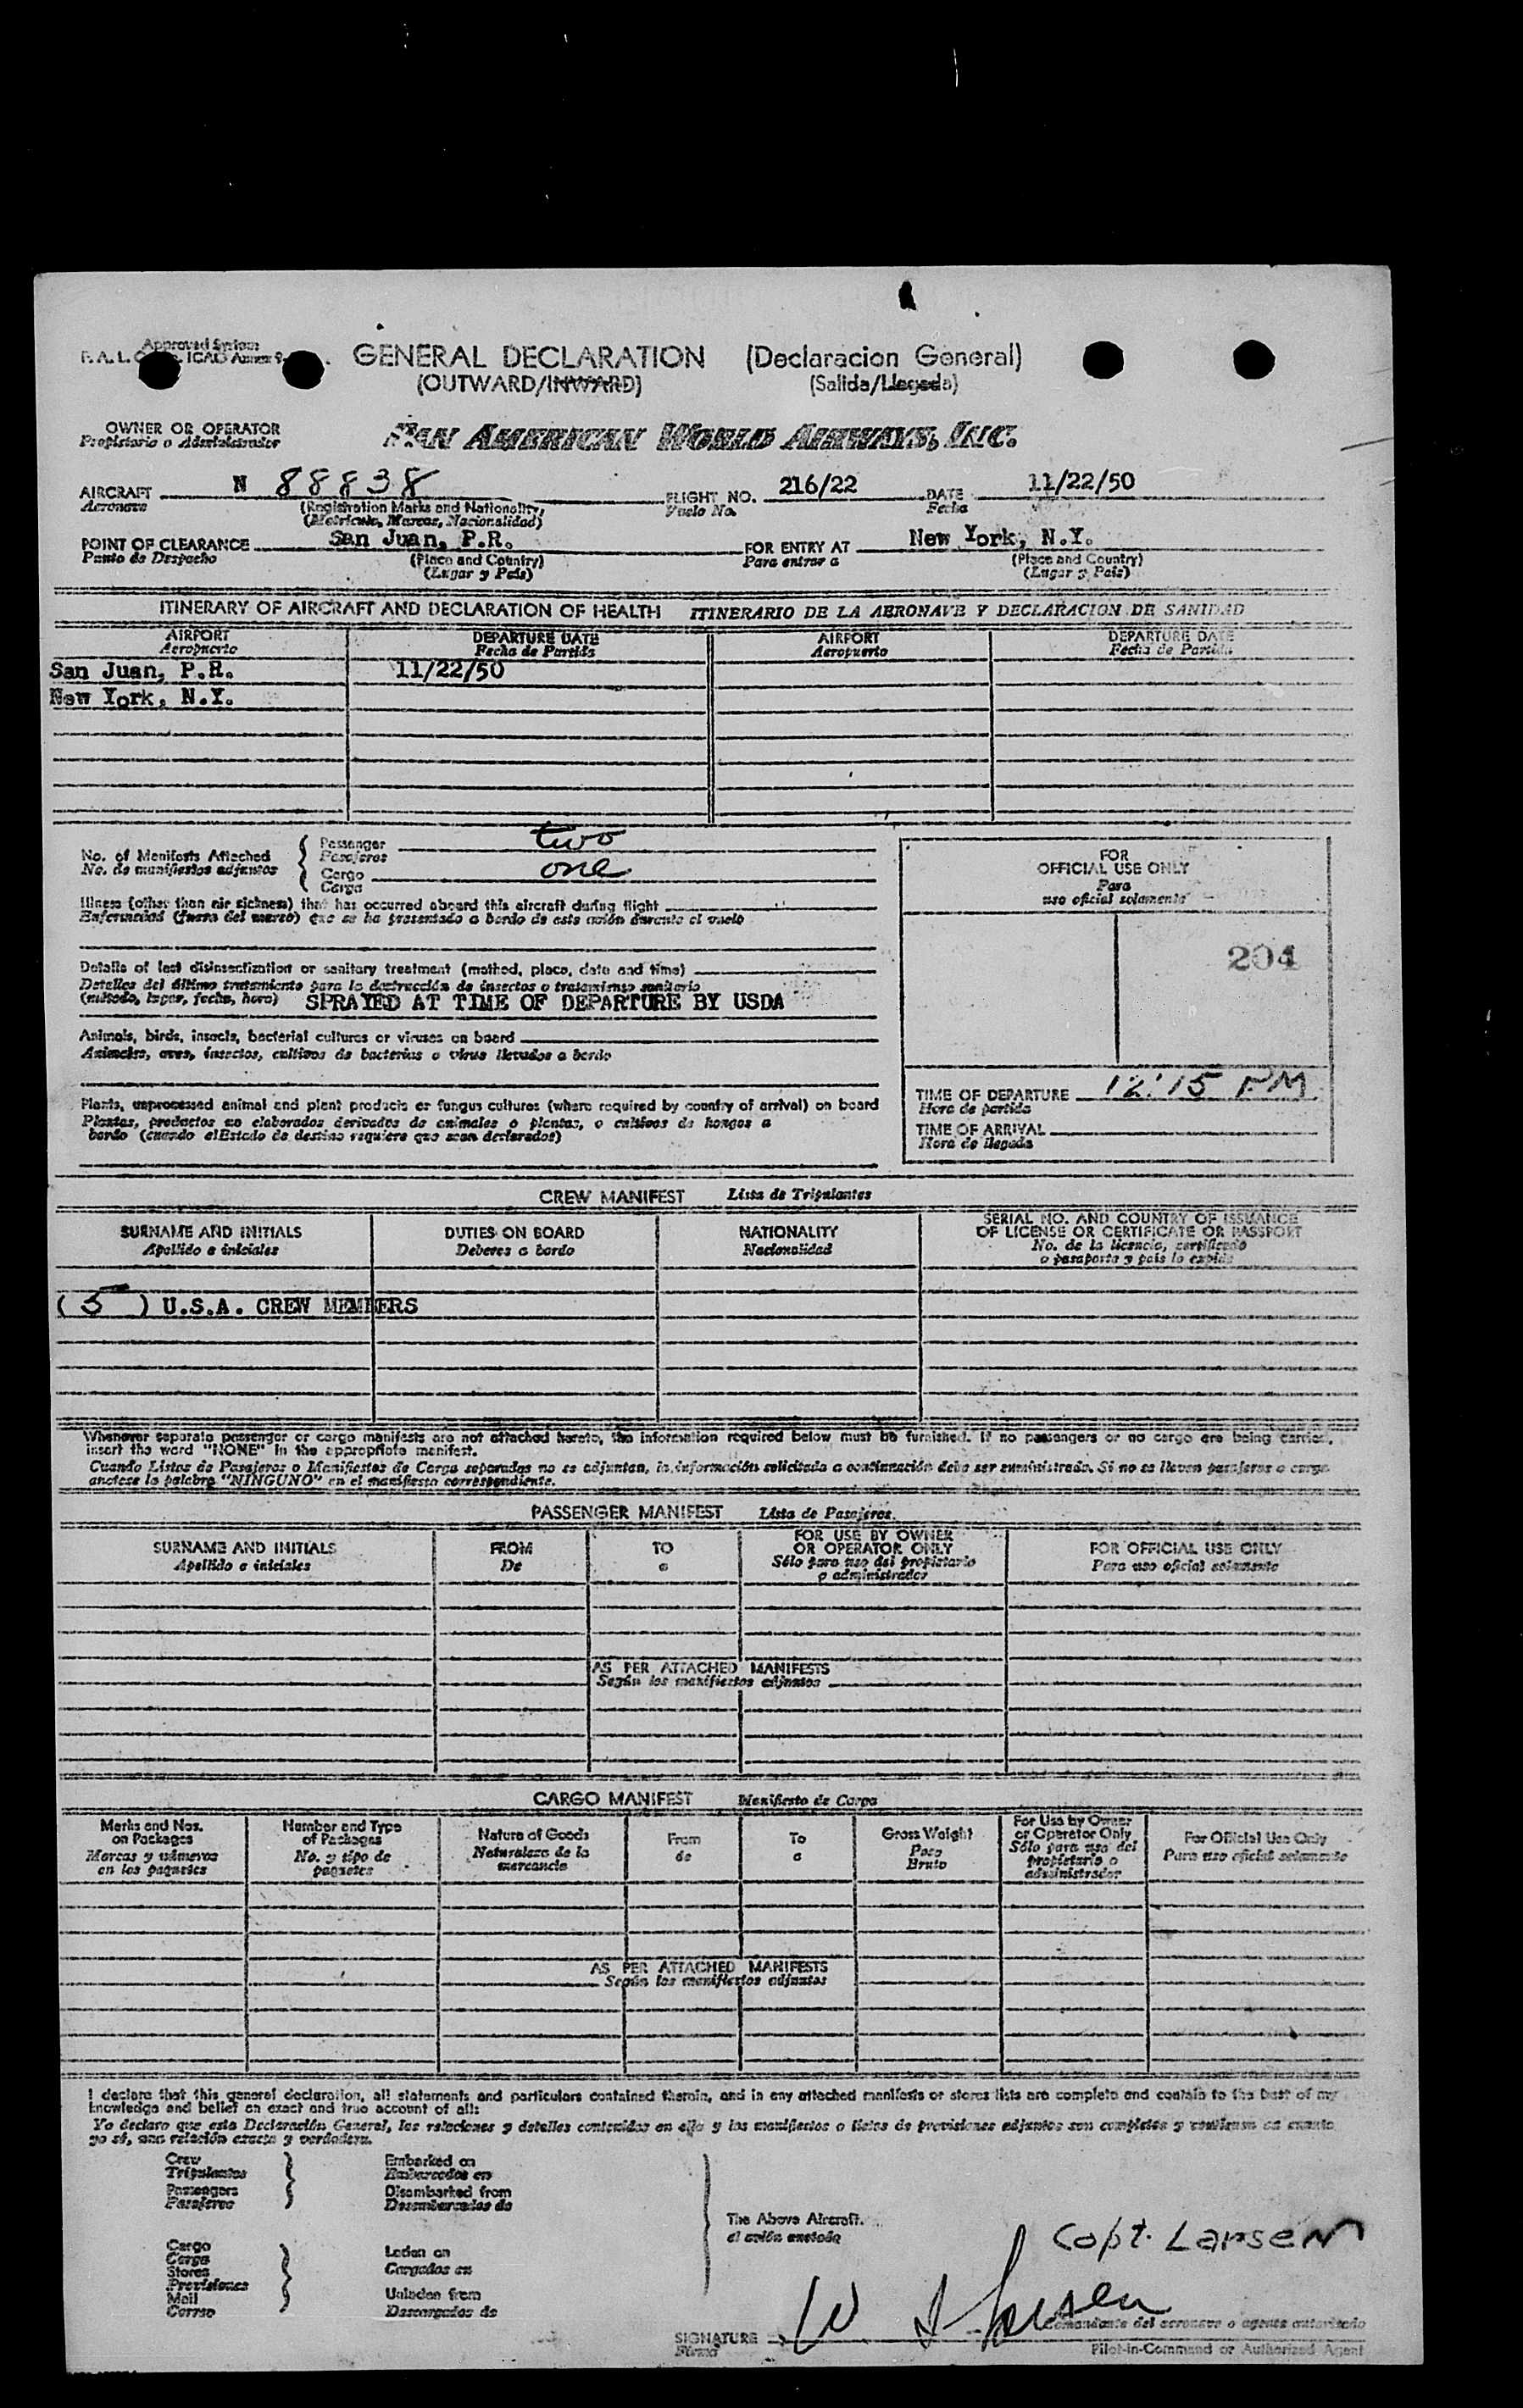 Approved System
F. A. L. ICAO Annex 9
GENERAL DECLARATION (Declaracion General)
(OUTWARD/INWARD) (Salida/Llegada)
OWNER OR OPERATOR
Propietario o Administrador
PAN AMERICAN WORLD AIRWAYS, INC.
AIRCRAFT N 88838 FLIGHT NO. 216/22 DATE 11/22/50
Aeronave (Registration Marks and Nationality) Vuelo No. Fecha
(Matricula, Marcas, Nacionalidad)
POINT OF CLEARANCE San Juan, P.R. FOR ENTRY AT New York, N.Y.
Punto de Despacho (Place and Country) Para entrar a (Place and Country)
(Lugar y País) (Lugar y País)
ITINERARY OF AIRCRAFT AND DECLARATION OF HEALTH ITINERARIO DE LA AERONAVE Y DECLARACION DE SANIDAD
AIRPORT DEPARTURE DATE AIRPORT DEPARTURE DATE
Aeropuerto Fecha de Partida Aeropuerto Fecha de Partida
San Juan, P.R. 11/22/50
New York, N.Y.
No. of Manifests Attached Passenger two
No. de manifiestos adjuntos Pasajeros
Cargo one
Carga
FOR
OFFICIAL USE ONLY
Para
uso oficial solamente
204
Illness (other than air sickness) that has occurred aboard this aircraft during flight
Enfermedad (fuera del mareo) que se ha presentado a bordo de este avión durante el vuelo
Details of last disinsectization or sanitary treatment (method, place, date and time)
Detalles del último tratamiento para la destrucción de insectos o tratamiento sanitario
(método, lugar, fecha, hora) SPRAYED AT TIME OF DEPARTURE BY USDA
Animals, birds, insects, bacterial cultures or viruses on board
Animales, aves, insectos, cultivos de bacterias o virus llevados a bordo
Plants, unprocessed animal and plant products or fungus cultures (where required by country of arrival) on board
Plantas, productos no elaborados derivados de animales o plantas, o cultivos de hongos a
bordo (cuando elEstado de destino requiere que sean declarados)
TIME OF DEPARTURE 12:15 PM
Hora de partida
TIME OF ARRIVAL
Hora de llegada
CREW MANIFEST Lista de Tripulantes
SURNAME AND INITIALS DUTIES ON BOARD NATIONALITY SERIAL NO. AND COUNTRY OF ISSUANCE
OF LICENSE OR CERTIFICATE OR PASSPORT
Apellido e iniciales Deberes a bordo Nacionalidad No. de la licencia, certificado
o pasaporte y país lo expide
( 5 ) U.S.A. CREW MEMBERS
Whenever separate passenger or cargo manifests are not attached hereto, the information required below must be furnished. If no passengers or no cargo are being carried,
insert the word "NONE" in the appropriate manifest.
Cuando Listas de Pasajeros o Manifiestos de Carga separadas no se adjuntan, la información solicitada a continuación debe ser suministrada. Si no se llevan pasajeros o carga
anotese la palabra "NINGUNO" en el manifiesto correspondiente.
PASSENGER MANIFEST Lista de Pasajeros
SURNAME AND INITIALS FROM TO FOR USE BY OWNER
OR OPERATOR ONLY FOR OFFICIAL USE ONLY
Apellido e iniciales De a Sólo para uso del propietario
o administrador Para uso oficial solamente
AS PER ATTACHED MANIFESTS
Según los manifiestos adjuntos
CARGO MANIFEST Manifiesto de Carga
Marks and Nos.
on Packages
Marcas y números
en los paquetes
Number and Type
of Packages
No. y tipo de
paquetes
Nature of Goods
Naturaleza de la
mercancía
From
de
To
a
Gross Weight
Peso
Bruto
For Use by Owner
or Operator Only
Sólo para uso del
propietario o
administrador
For Official Use Only
Para uso oficial solamente
AS PER ATTACHED MANIFESTS
Según los manifiestos adjuntos
I declare that this general declaration, all statements and particulars contained therein, and in any attached manifests or stores lists are complete and contain to the best of my
knowledge and belief an exact and true account of all:
Yo declaro que esta Declaración General, las relaciones y detalles contenidos en ella y los manifiestos o listas de provisiones adjuntos son completos y contienen en cuanto
yo sé, una relación exacta y verdadera.
Crew
Tripulantes
Passengers
Pasajeros
Embarked on
Embarcados en
Disembarked from
Desembarcados de
The Above Aircraft.
el avión anotado
Cargo
Carga
Stores
Provisiones
Mail
Correo
Laden on
Cargados en
Unladen from
Descargados de
Capt. Larsen
SIGNATURE W Larsen
Firma
Comandante del aeronave o agente autorizado
Pilot-in-Command or Authorized Agent